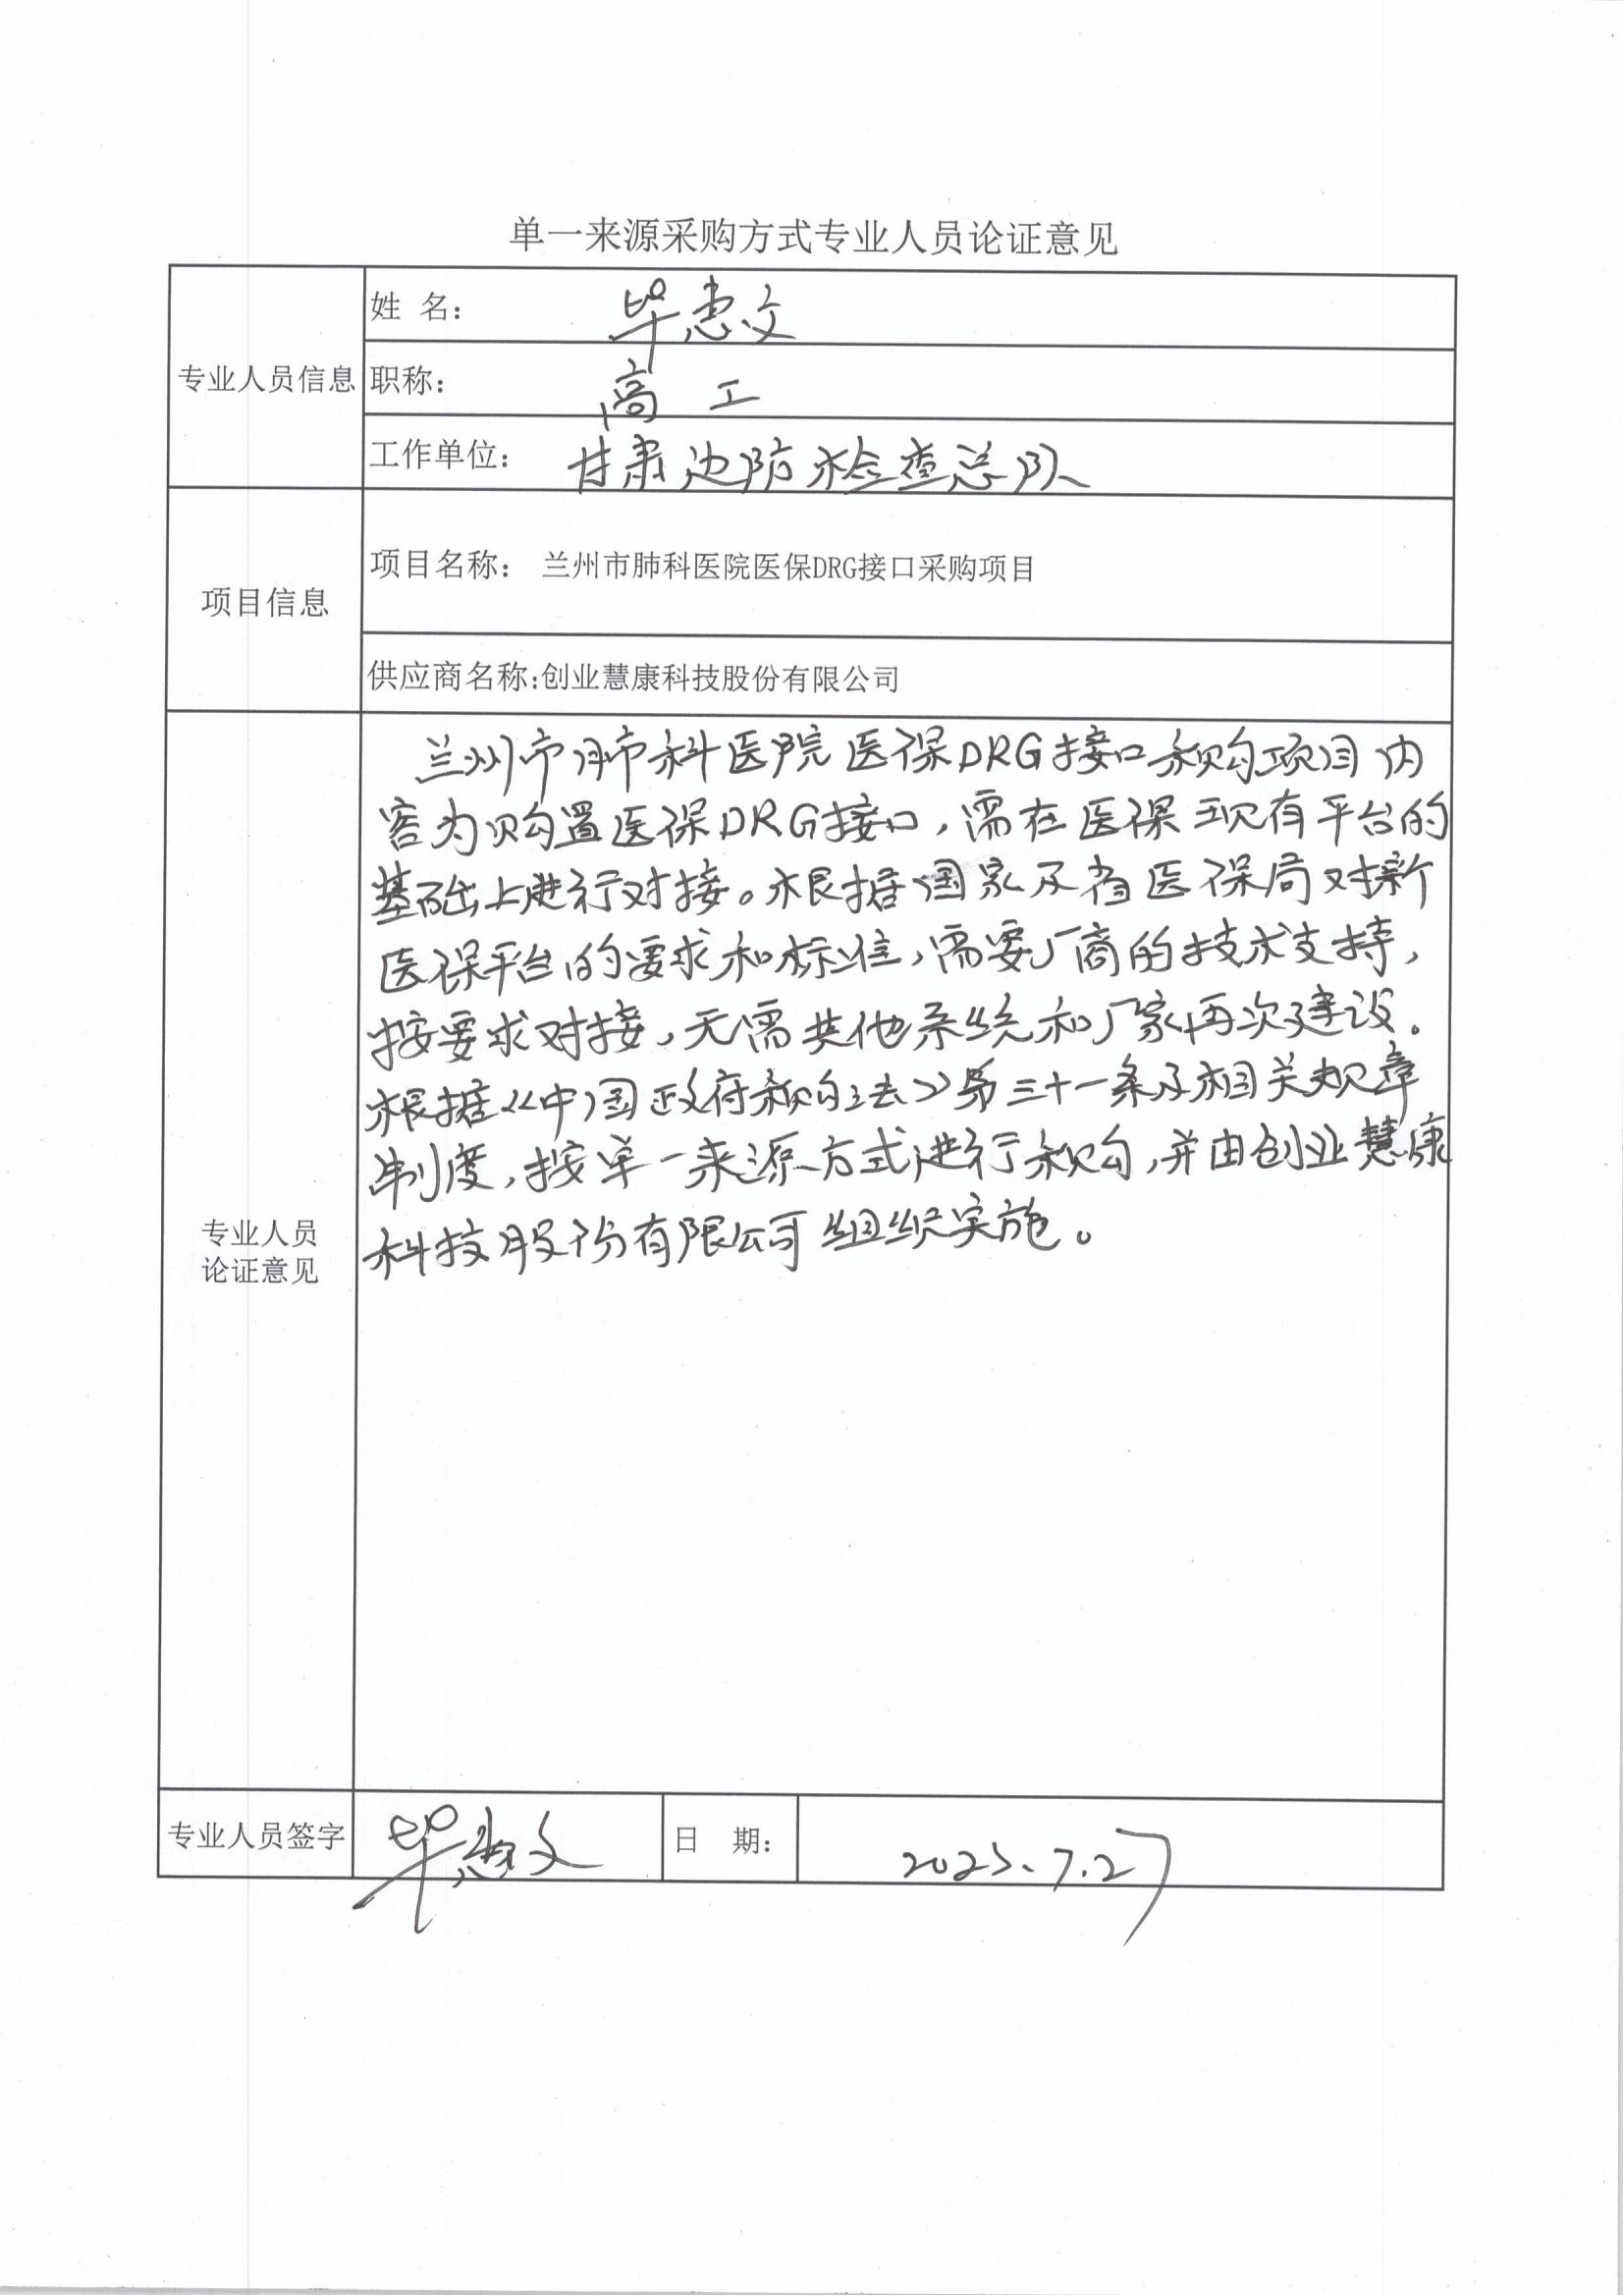 单一来源采购方式专业人员论证意见
专业人员信息
姓 名： 毕惠文
职称： 高 工
工作单位： 甘肃边防检查总队
项目信息
项目名称： 兰州市肺科医院医保DRG接口采购项目
供应商名称:创业慧康科技股份有限公司
专业人员
论证意见
兰州市肺科医院医保DRG接口采购项目内
容为购置医保DRG接口，需在医保现有平台的
基础上进行对接。根据国家及省医保局对新
医保平台的要求和标准，需要厂商的技术支持，
按要求对接，无需其他系统和厂家再次建设。
根据《中国政府采购法》第三十一条及相关规章
制度，按单一来源方式进行采购，并由创业慧康
科技股份有限公司组织实施。
专业人员签字 毕惠文 日 期： 2023.7.27